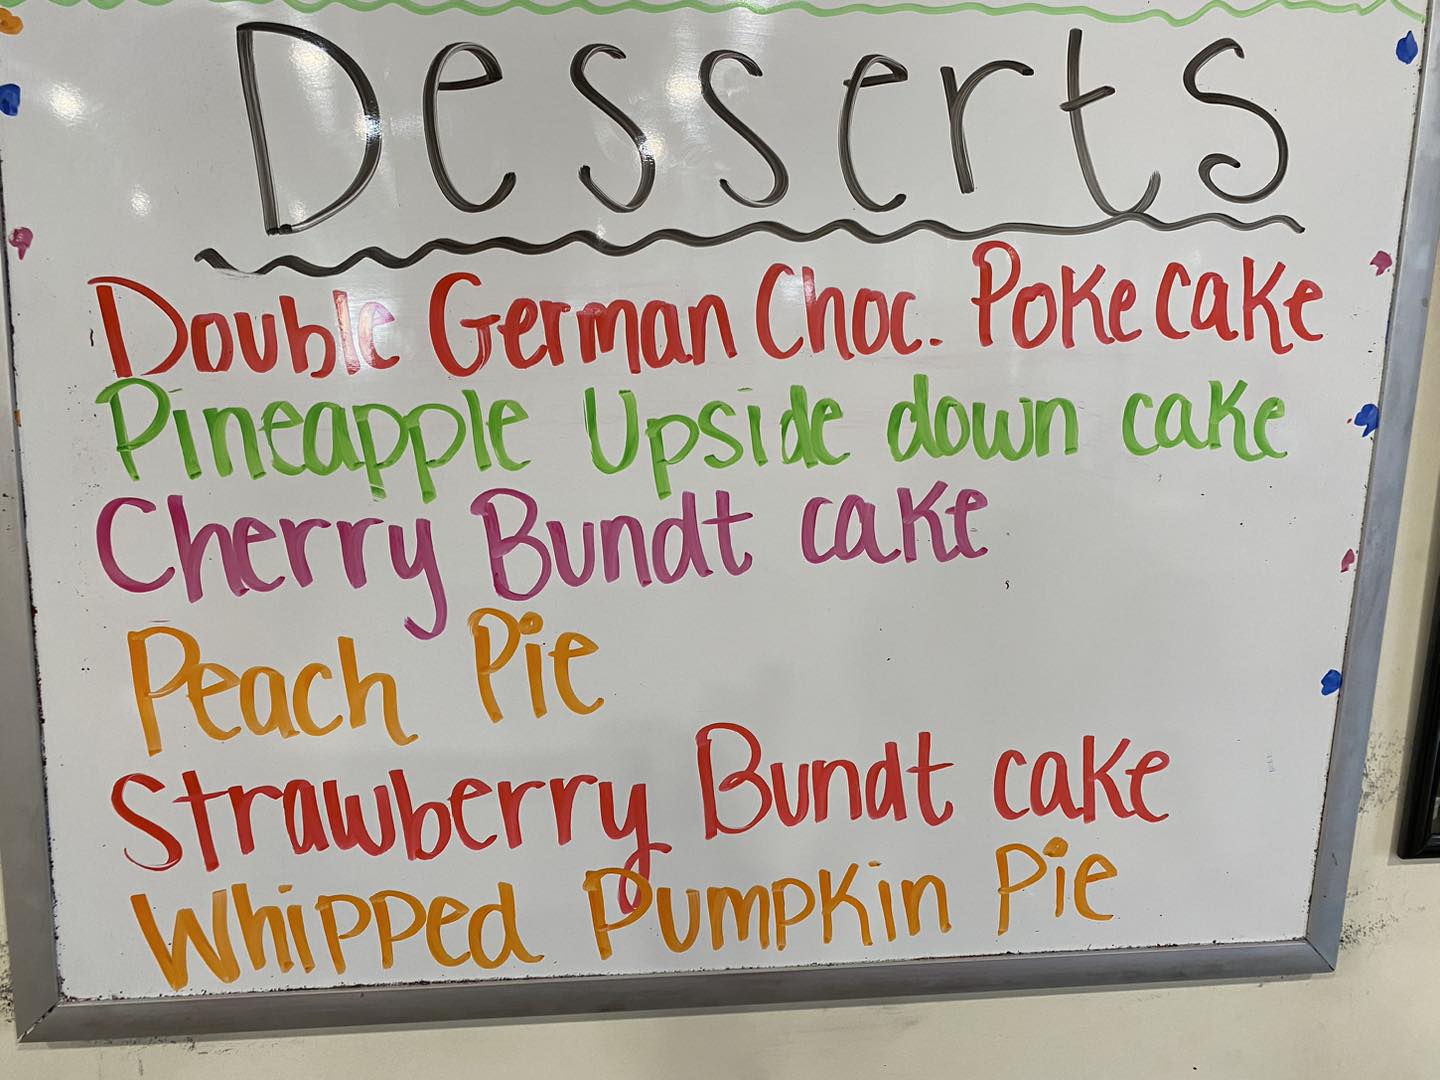 Desserts
Double German Choc. Poke cake
Pineapple Upside down cake
Cherry Bundt cake
Peach Pie
Strawberry Bundt cake
Whipped Pumpkin Pie